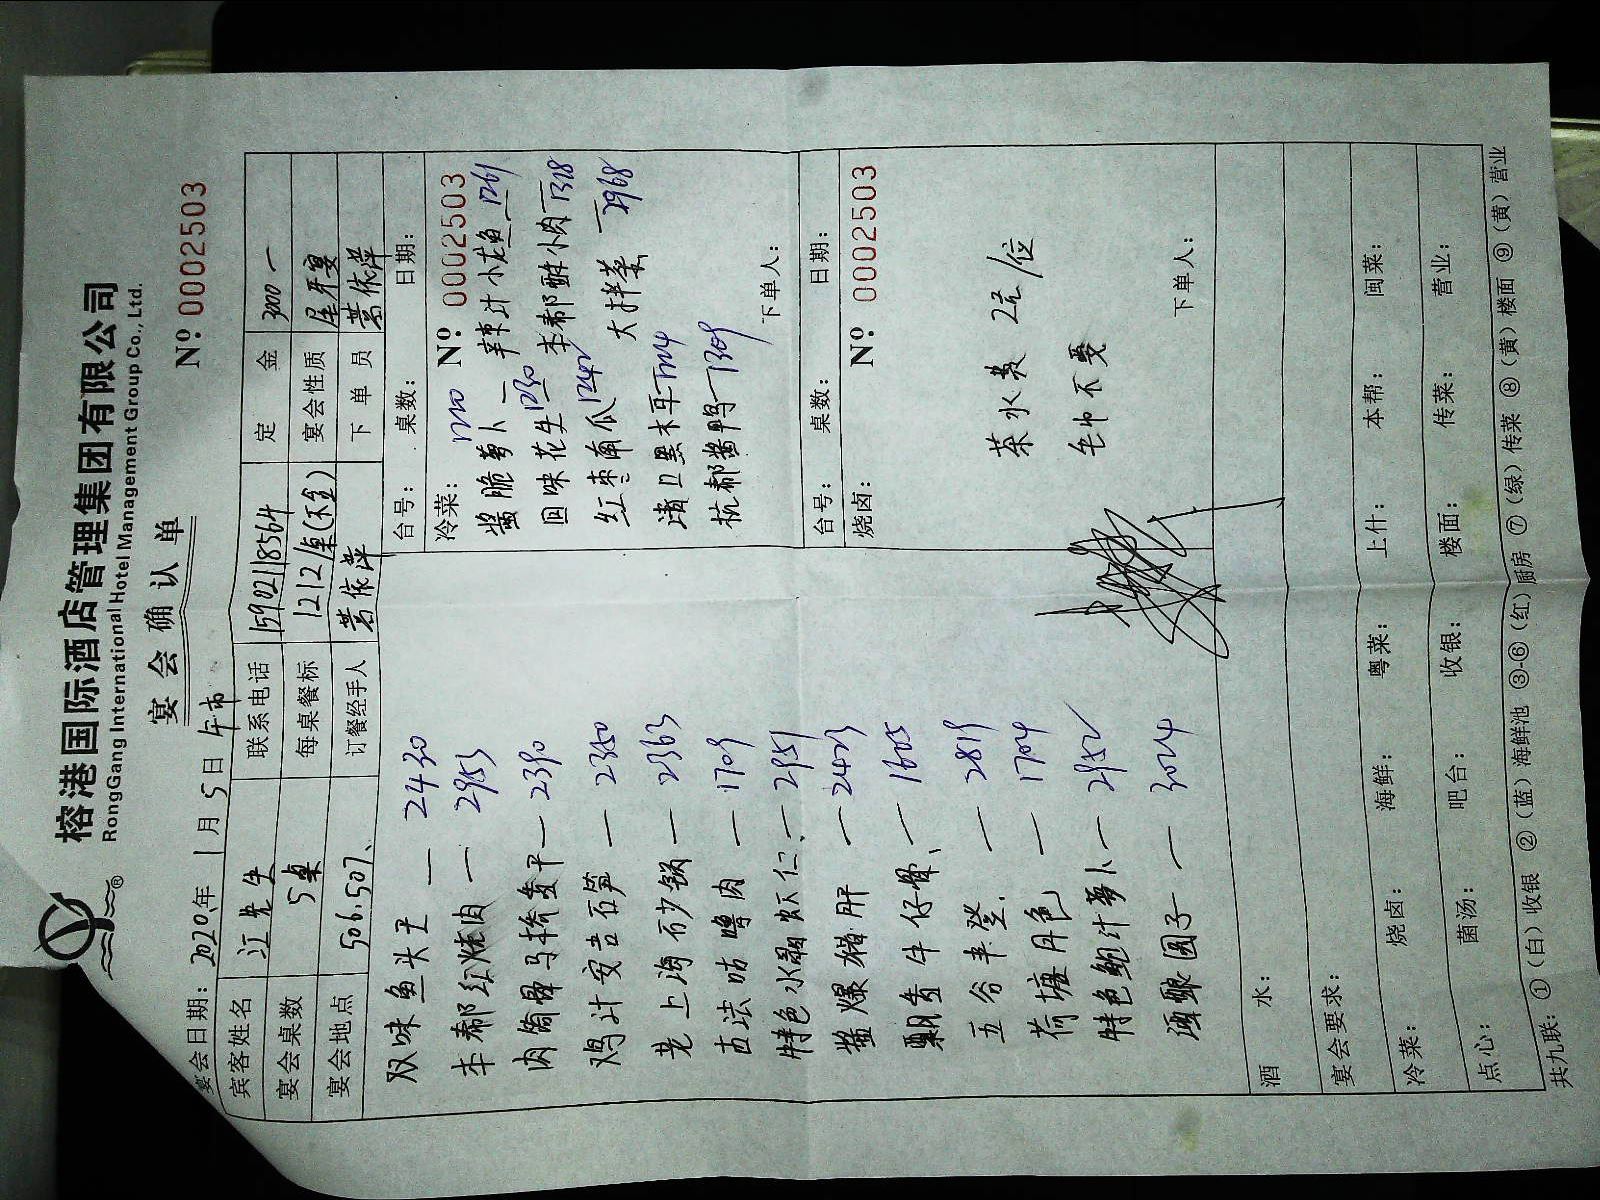 榕港国际酒店管理集团有限公司
RongGang International Hotel Management Group Co., Ltd.
宴会确认单
Nº 0002503
宴会日期：2020年1月5日 午市
宾客姓名 江先生 联系电话 15902118564 定金 3000一
宴会桌数 5桌 每桌餐标 1212/桌(不含) 宴会性质 尾牙宴
宴会地点 506.507、 订餐经手人 依萍 下单员 依萍
双味鱼头王 — 2430
本帮红烧肉 — 2953
肉 — 2390
鸡汁安吉石笋 — 2350
老上海石少锅 — 2363
古法咕噜肉 — 1709
特色水晶虾仁 — 2951
酱爆猪肝 — 2403
飘香牛仔骨、— 1605
五谷丰登. — 2819
荷塘月色 — 1704
特色鲍汁萝卜 — 2952
酒酿圆子 — 3024
台号： 桌数： 日期：
冷菜： Nº 0002503
酱脆萝卜 — 辣汁小龙鱼 — 1261
回味花生 1230 本帮酥小肉 — 1318
红枣南瓜 1242 大拌菜 — 2968
清卫黑木耳
杭帮酱鸭 — 1309
下单人：
台号： 桌数： 日期：
烧卤： Nº 0002503
茶水费 2元/位
毛巾不要
下单人：
酒 水：
宴会要求：
冷菜： 烧卤： 海鲜： 粤菜： 上什： 本帮： 闽菜：
点心： 菌汤： 吧台： 收银： 楼面： 传菜： 营业：
共九联：①（白）收银 ②（蓝）海鲜池 ③-⑥（红）厨房 ⑦（绿）传菜 ⑧（黄）楼面 ⑨（黄）营业